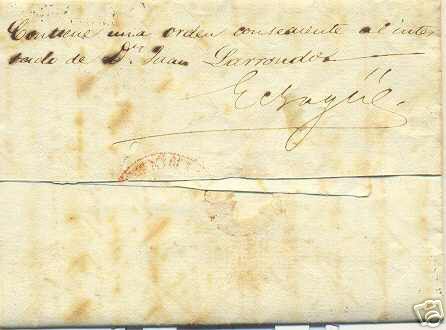 Contiene una orden consecuente al inte-
rado de Dn. Juan Larrondo
Echagüe.